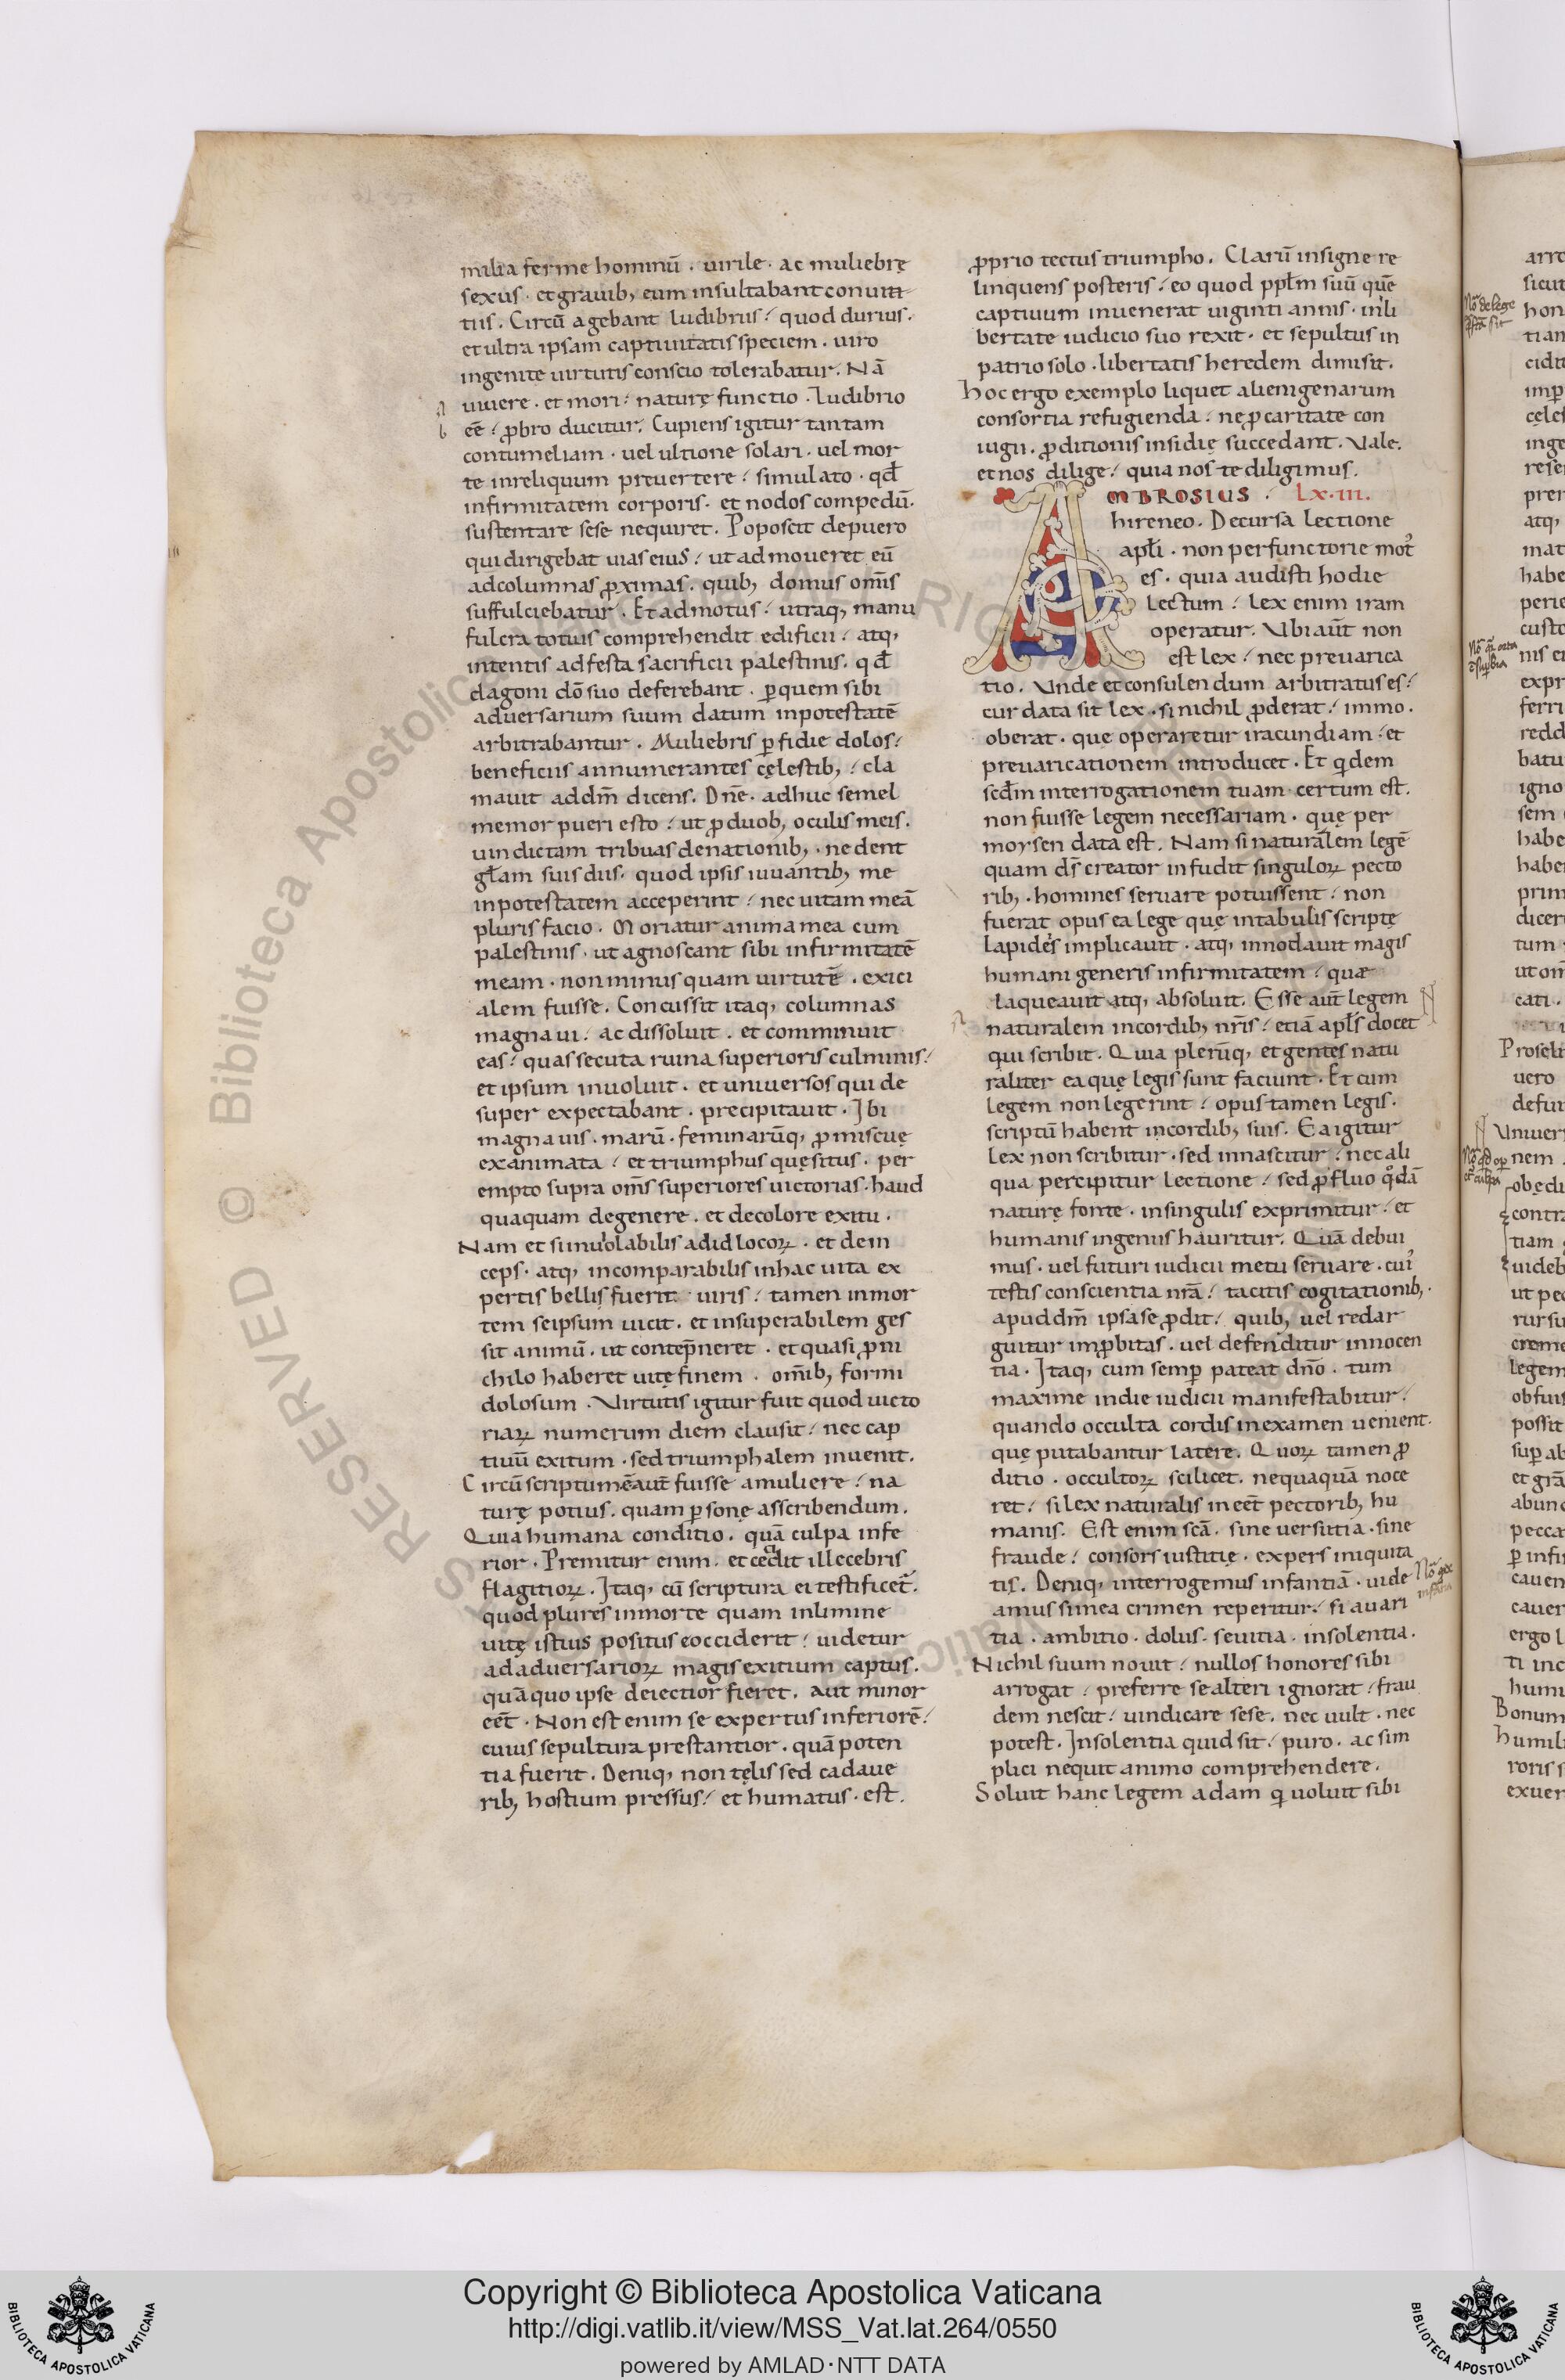 milia ferme hominū . uirile . ac muliebrę
sexus . et grauib; eum insultabant conuiti
tiis . Circū agebant ludibriis / quod durius .
et ultra ipsam captiuitatis speciem . uiro
ingenite uirtutis conscio tolerabatur . Nā
uiuere . et mori / naturę functio . ludibrio
eē / ꝓbro ducitur . Cupiens igitur tantam
contumeliam . uel ultione solari . uel mor
te inreliquum preuertere / simulato . qđ
infirmitatem corporis . et nodos compedū .
sustentare sese nequiret . Poposcit depuero
qui dirigebat uias eius / ut admoueret eū
ad columnas ꝓximas . quib; domus om̄s
suffulciebatur . Et admotus / utraq; manu
fulcra totius comprehendit edificii / atq;
intentis ad festa sacrificii palestinis . qđ
dagoni dō suo deferebant . ꝑquem sibi
aduersarium suum datum inpotestatē
arbitrabantur . Muliebris ꝑfidie dolos /
beneficiis annumerantes cęlestib; / cla
mauit addm̄ dicens . Dn̄e . adhuc semel
memor pueri esto / ut ꝓduob; oculis meis .
uindictam tribuas denationib; . ne dent
gl̄am suis diis . quod ipsis iuuantib; me
inpotestatem acceperint / nec uitam meā
pluris facio . Moriatur anima mea cum
palestinis . ut agnoscant sibi infirmitatē
meam . non minus quam uirtutē . exici
alem fuisse . Concussit itaq; columnas
magna ui / ac dissoluit . et comminuit
eas / quas secuta ruina superioris culminis /
et ipsum inuoluit . et uniuersos qui de
super expectabant . precipitauit . Ibi
magna uis . marū . feminarūq; ꝓmiscuę
exanimata / et triumphus quęsitus . per
empto supra om̄s superiores uictorias . haud
quaquam degenere . et decolore exitu .
Nam et si inuiolabilis adid locoꝝ . et dein
ceps . atq; incomparabilis inhac uita ex
pertis bellis fuerit uiris / tamen inmor
tem seipsum uicit . et insuperabilem ges
sit animū . ut contēpneret . et quasi ꝓni
chilo haberet uitę finem . om̄ib; formi
dolosum . Virtutis igitur fuit quod uicto
riaꝝ numerum diem clausit / nec cap
tiuū exitum . sed triumphalem inuenit .
Circūscriptum ē aut̄ fuisse amuliere / na
turę potius . quam ꝑsonę asscribendum .
Quia humana conditio . quā culpa infe
rior . Premitur enim . et cedit illecebris
flagitioꝝ . Itaq; cū scriptura ei testificet̄ .
quod plures inmorte quam inlimine
uitę istius positus eocciderit / uidetur
adaduersarioꝝ magis exitium captus .
quā quo ipse deiectior fieret . aut minor
eēt . Non est enim se expertus inferiorē /
cuius sepultura prestantior . quā poten
tia fuerit . Deniq; non tęlis sed cadaue
rib; hostium pressus / et humatus . est .
ꝓprio tectus triumpho . Clarū insigne re
linquens posteris / eo quod ppl̄m suū quē
captiuum inuenerat uiginti annis . in li
bertate iudicio suo rexit . et sepultus in
patrio solo . libertatis heredem dimisit .
hoc ergo exemplo liquet alienigenarum
consortia refugienda / ne ꝓcaritate con
iugii . ꝓditionis insidię succedant . Vale .
et nos dilige / quia nos te diligimus .
AMBROSIUS . LX . III .
hireneo . Decursa lectione
apl̄i . non perfunctorie mot᷒
es . quia audisti hodie
lectum / Lex enim iram
operatur . Vbi aut̄ non
est lex / nec preuarica
tio . Vnde et consulendum arbitratus es /
cur data sit lex . si nichil ꝓderat / immo .
oberat . quę operaretur iracundiam / et
preuaricationem introducet . Et qͥdem
scd̄m interrogationem tuam certum est .
non fuisse legem necessariam . quę per
moysen data est . Nam si naturalem legē
quam ds̄ creator infudit singuloꝝ pecto
rib; . homines seruare potuissent / non
fuerat opus ea lege quę intabulis scriptę
lapideis implicauit . atq; innodauit magis
humani generis infirmitatem / quæ
laqueauit atq; absoluit . Esse aut̄ legem
naturalem incordib; nr̄is / etiā apl̄s docet
qui scribit . Quia plerūq; et gentes natu
raliter ea quę legis sunt faciunt . Et cum
legem non legerint / opus tamen legis .
scriptū habent incordib; suis . Ea igitur
lex non scribitur . sed innascitur / nec ali
qua percipitur lectione / sed ꝓfluo qͦdā
naturę fonte . insingulis exprimitur / et
humanis ingeniis hauritur . Quā debui
mus . uel futuri iudicii metu seruare . cui᷒
testis conscientia nr̄a / tacitis cogitationib; .
apuddm̄ ipsa se ꝓdit / quib; uel redar
guitur imꝓbitas . uel defenditur innocen
tia . Itaq; cum semꝑ pateat dn̄o . tum
maxime indie iudicii manifestabitur /
quando occulta cordis inexamen uenient .
quę putabantur latere . Quoꝝ tamen ꝓ
ditio . occultoꝝ scilicet . nequaquā noce
ret / si lex naturalis ineēt pectorib; hu
manis . Est enim scā . sine uersutia . sine
fraude / consors iustitię . expers iniquita
tis . Deniq; interrogemus infantiā . uide
amus si inea crimen reperitur / si auari
tia . ambitio . dolus . seuitia . insolentia .
Nichil suum nouit / nullos honores sibi
arrogat / preferre se alteri ignorat / frau
dem nescit / uindicare sese . nec uult . nec
potest . Insolentia quid sit / puro . ac sim
plici nequit animo comprehendere .
Soluit hanc legem adam qͥ uoluit sibi
Copyright © Biblioteca Apostolica Vaticana
http://digi.vatlib.it/view/MSS_Vat.lat.264/0550
powered by AMLAD·NTT DATA
BIBLIOTECA APOSTOLICA VATICANA
BIBLIOTECA APOSTOLICA VATICANA